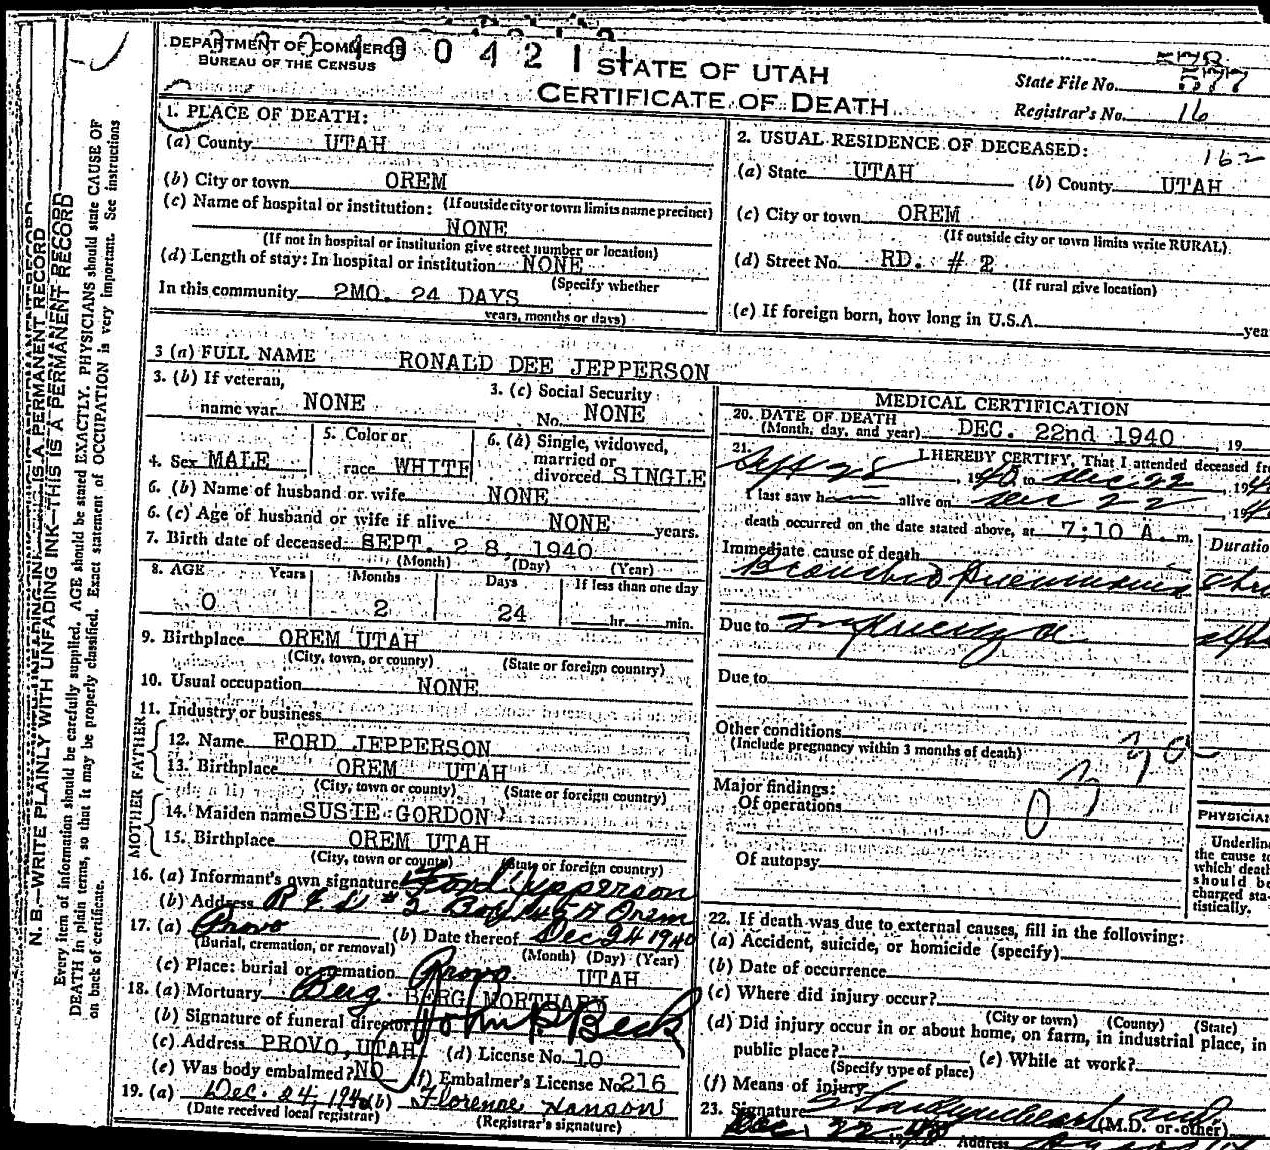 DEPARTMENT OF COMMERCE
BUREAU OF THE CENSUS
STATE OF UTAH
CERTIFICATE OF DEATH
State File No. 577
Registrar's No. 16
1. PLACE OF DEATH:
(a) County UTAH
(b) City or town OREM
(If outside city or town limits name precinct)
(c) Name of hospital or institution:
NONE
(If not in hospital or institution give street number or location)
(d) Length of stay: In hospital or institution NONE
(Specify whether
In this community 2MO. 24 DAYS
years, months or days)
2. USUAL RESIDENCE OF DECEASED:
162
(a) State UTAH (b) County UTAH
(c) City or town OREM
(If outside city or town limits write RURAL)
(d) Street No. RD. # 2
(If rural give location)
(e) If foreign born, how long in U.S.A. yea
3 (a) FULL NAME RONALD DEE JEPPERSON
3. (b) If veteran,
name war NONE
3. (c) Social Security
No. NONE
4. Sex MALE
5. Color or
race WHITE
6. (a) Single, widowed,
married or
divorced SINGLE
6. (b) Name of husband or wife NONE
6. (c) Age of husband or wife if alive NONE years.
7. Birth date of deceased SEPT. 28, 1940
(Month) (Day) (Year)
8. AGE Years Months Days If less than one day
0 2 24 hr. min.
9. Birthplace OREM UTAH
(City, town, or county) (State or foreign country)
10. Usual occupation NONE
11. Industry or business
FATHER
12. Name FORD JEPPERSON
13. Birthplace OREM UTAH
(City, town or county) (State or foreign country)
MOTHER
14. Maiden name SUSIE GORDON
15. Birthplace OREM UTAH
(City, town or county) (State or foreign country)
16. (a) Informant's own signature Ford Jepperson
(b) Address R F D #2 Box Orem
17. (a) Provo (b) Date thereof Dec 24 1940
(Burial, cremation, or removal) (Month) (Day) (Year)
(c) Place: burial or cremation Provo UTAH
18. (a) Mortuary Berg BERG MORTUARY
(b) Signature of funeral director John P Beck
(c) Address PROVO, UTAH (d) License No. 10
(e) Was body embalmed? NO (f) Embalmer's License No. 216
19. (a) Dec. 24, 1940 (b) Florence Hanson
(Date received local registrar) (Registrar's signature)
MEDICAL CERTIFICATION
20. DATE OF DEATH
(Month, day, and year) DEC. 22nd 1940, 19
21. I HEREBY CERTIFY, That I attended deceased fr
Sept 28, 1940, to Dec 22, 194
I last saw h alive on Dec 22, 194
death occurred on the date stated above, at 7;10 A. m.
Duratio
Immediate cause of death
Broncho Pneumonia
Due to Influenza
Due to
Other conditions
(Include pregnancy within 3 months of death)
Major findings:
Of operations
Of autopsy
PHYSICIAN
Underline
the cause to
which death
should be
charged sta-
tistically.
22. If death was due to external causes, fill in the following:
(a) Accident, suicide, or homicide (specify)
(b) Date of occurrence
(c) Where did injury occur?
(City or town) (County) (State)
(d) Did injury occur in or about home, on farm, in industrial place, in
public place? (e) While at work?
(Specify type of place)
(f) Means of injury
23. Signature (M.D. or other)
Dec. 22 1940 Address
N. B.—WRITE PLAINLY WITH UNFADING INK—THIS IS A PERMANENT RECORD
Every item of information should be carefully supplied. AGE should be stated EXACTLY. PHYSICIANS should state CAUSE OF
DEATH in plain terms, so that it may be properly classified. Exact statement of OCCUPATION is very important. See instructions
on back of certificate.